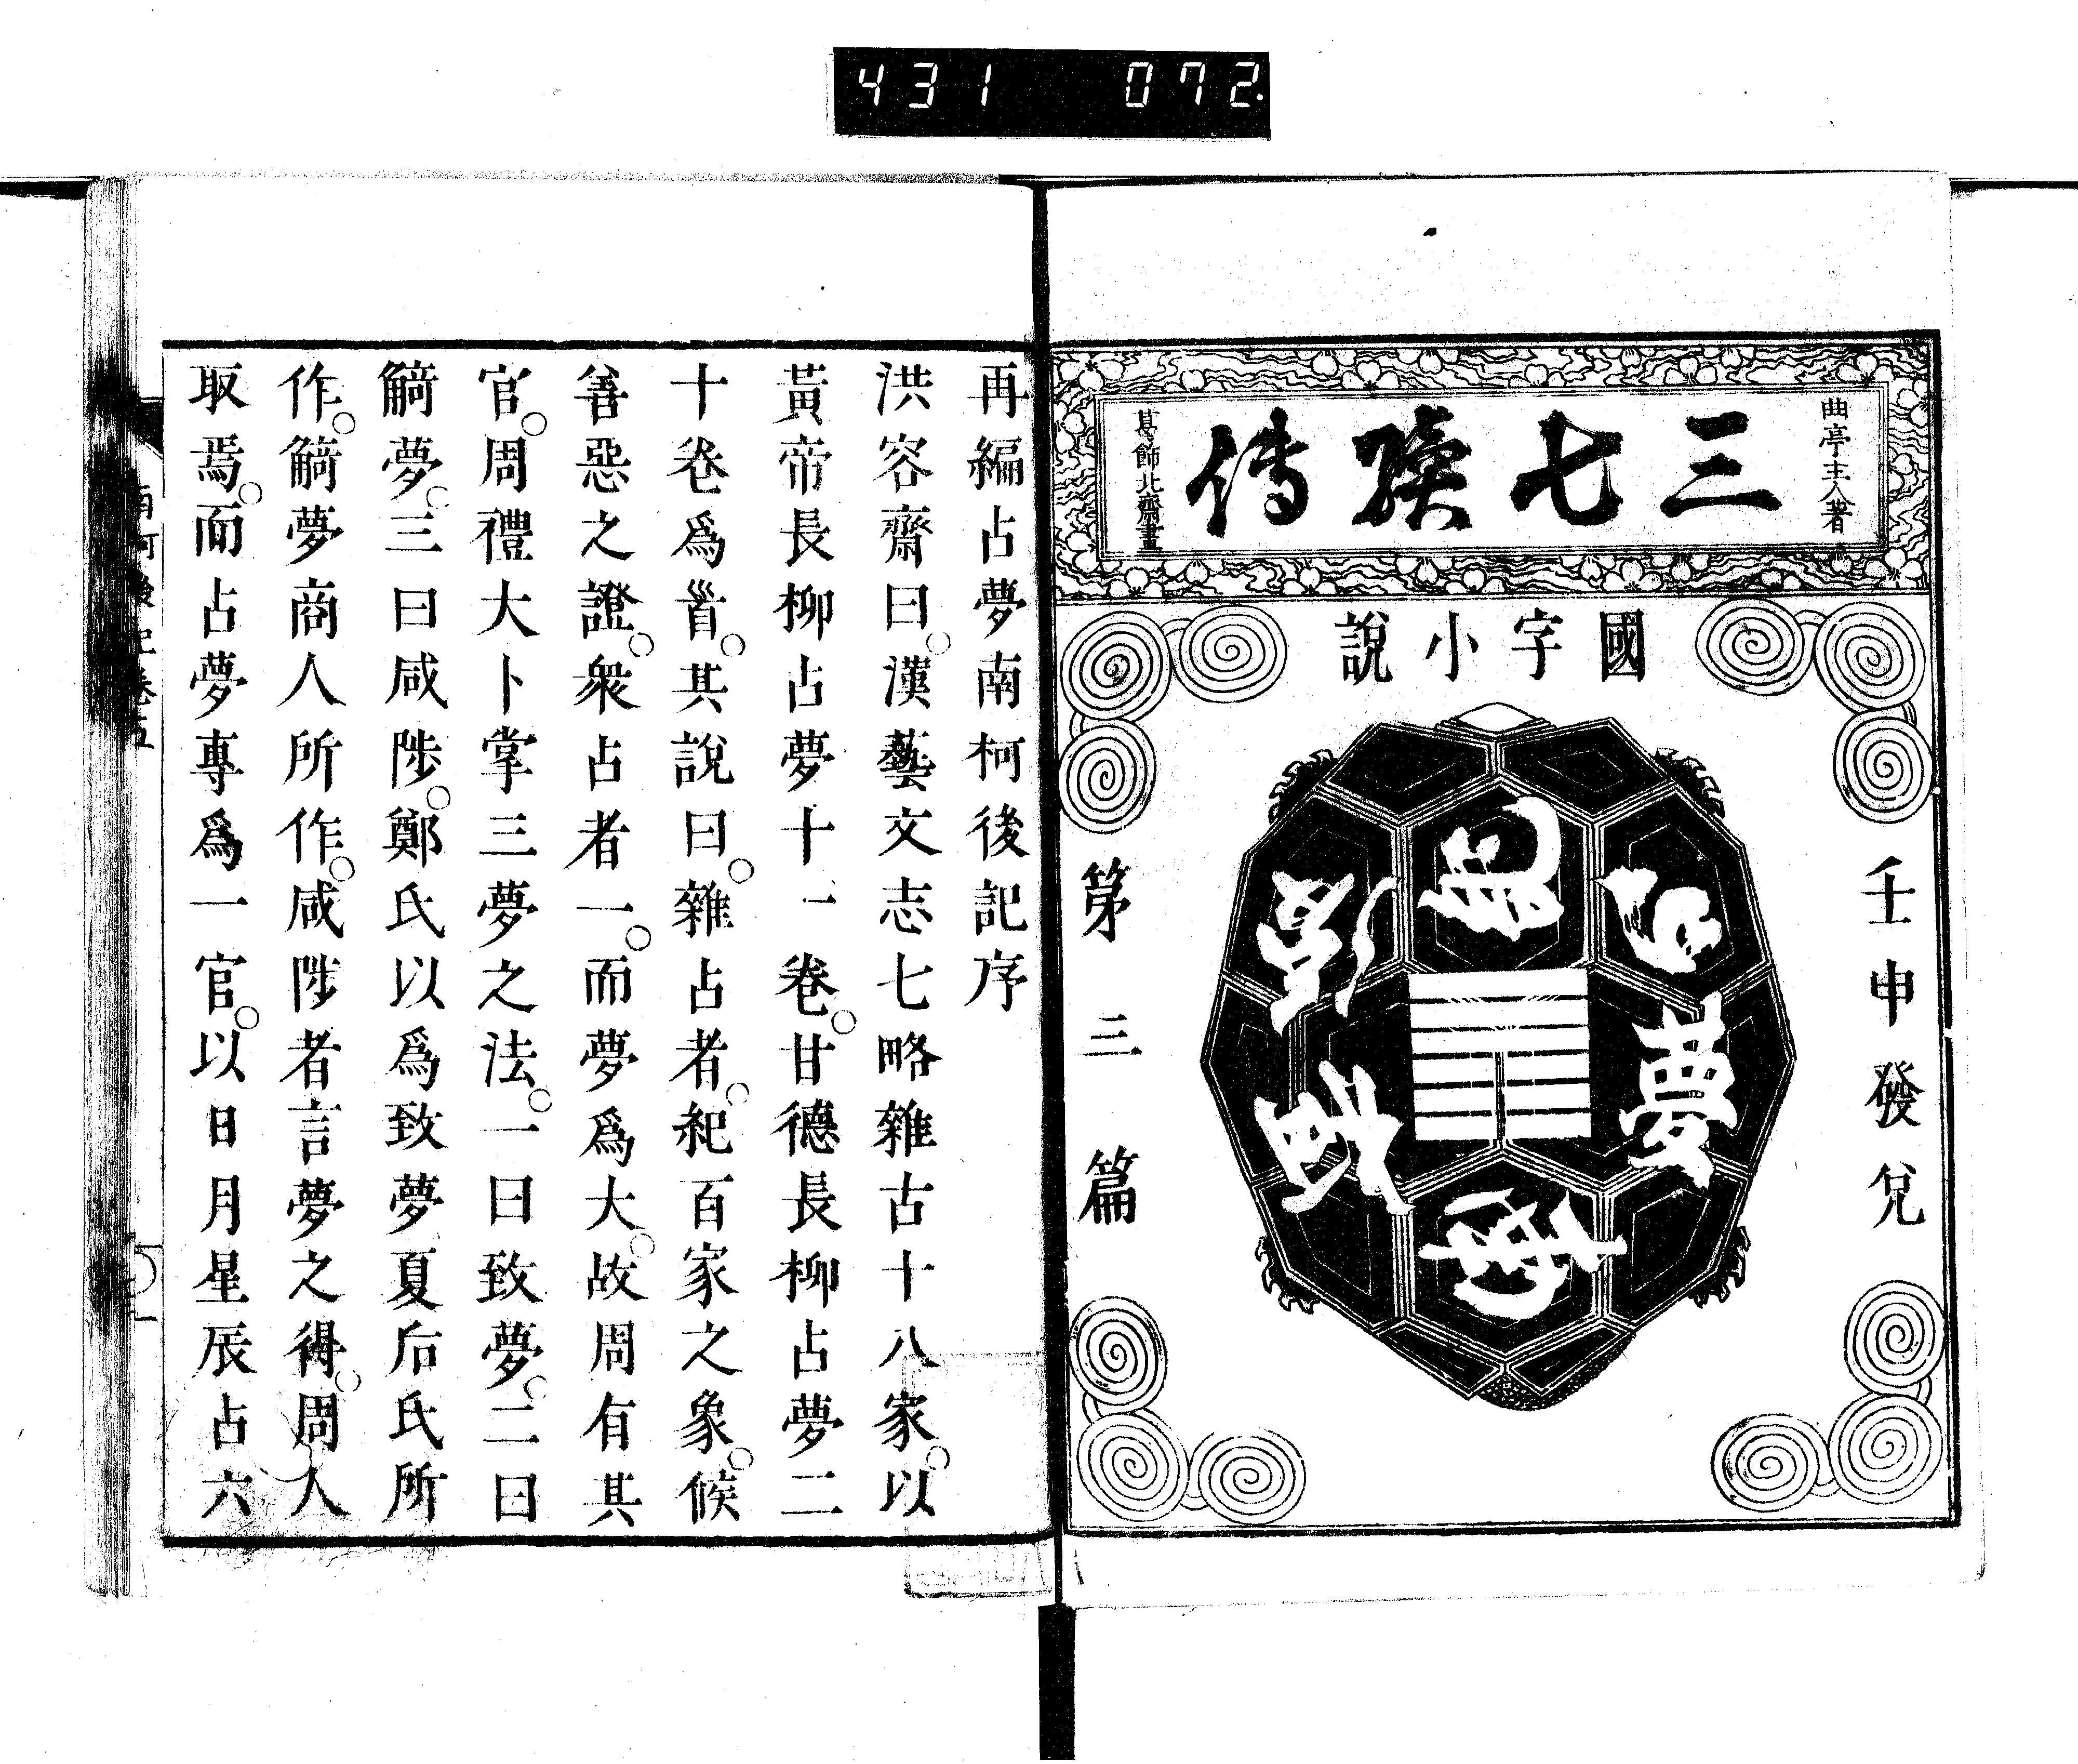 431 072
曲亭主人著
三七殘傳
葛飾北齋畫
國字小說
壬申發兌
占夢
第三篇
再編占夢南柯後記序
洪容齋曰漢藝文志七略雜古十八家以
黃帝長柳占夢十一卷甘德長柳占夢二
十卷爲首其說曰雜占者紀百家之象候
善惡之證衆占者一而夢爲大故周有其
官周禮大卜掌三夢之法一曰致夢二曰
觭夢三曰咸陟鄭氏以爲致夢夏后氏所
作觭夢商人所作咸陟者言夢之得周人
取焉而占夢專爲一官以日月星辰占六